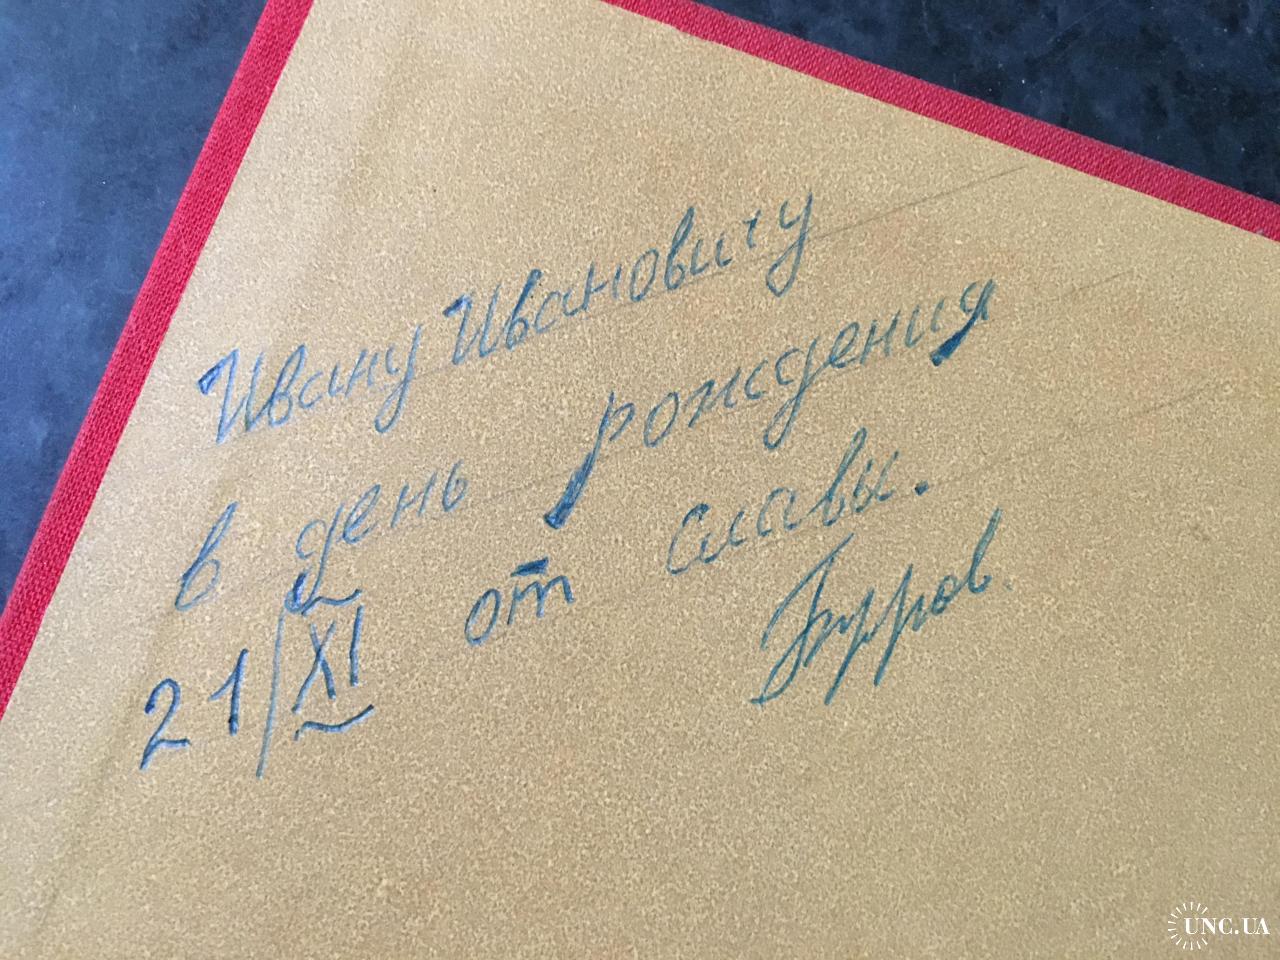 Ивану Ивановичу
в день рождения
21/XI от Славы.
UNC.UA